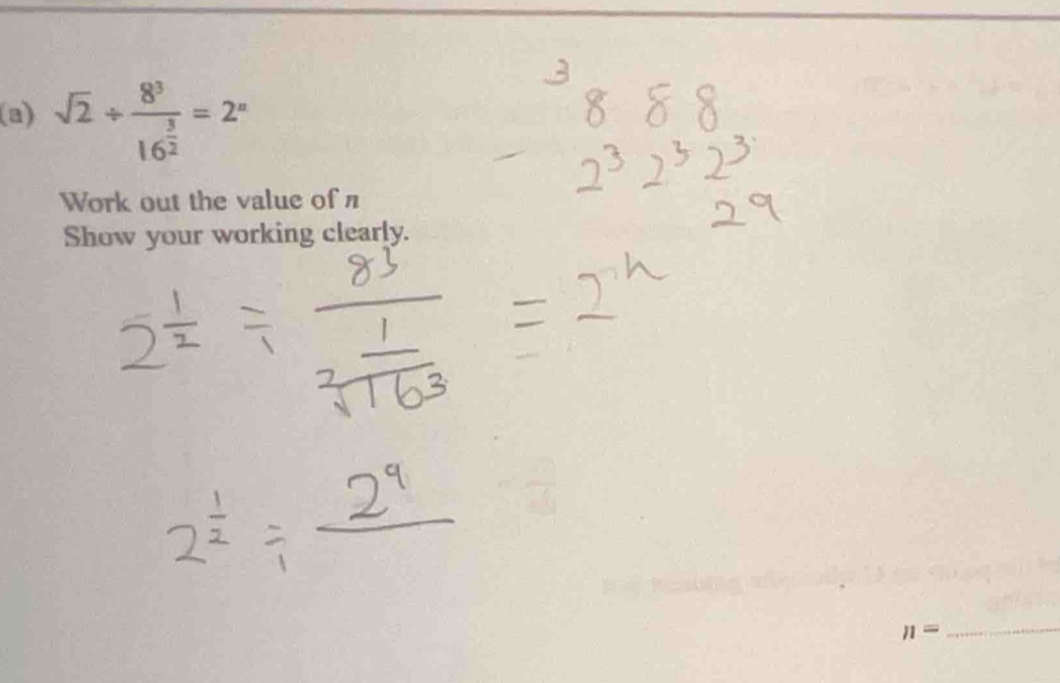 (a) √2 ÷ 8³/16^(3/2) = 2ⁿ
Work out the value of n
Show your working clearly.
3
8 8 8
2³ 2³ 2³
2⁹
2^(1/2) ÷ 8³/(1/²√16³) = 2ⁿ
2^(1/2) ÷ 2⁹
n =